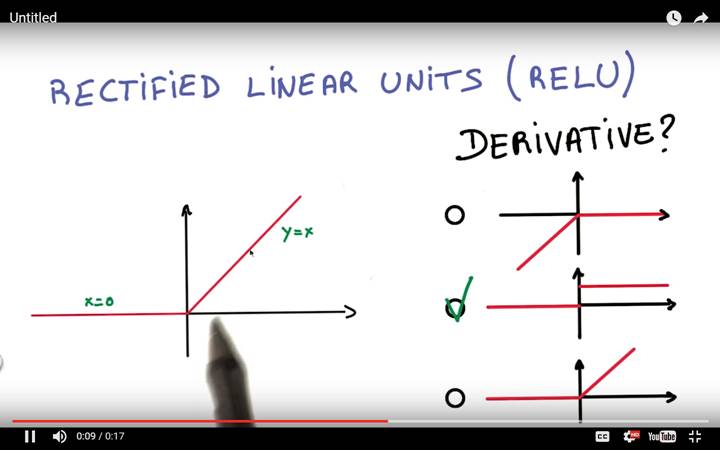 Untitled
RECTIFIED LINEAR UNITS (RELU)
DERIVATIVE?
y=x
x=0
0:09 / 0:17
CC
HD
YouTube